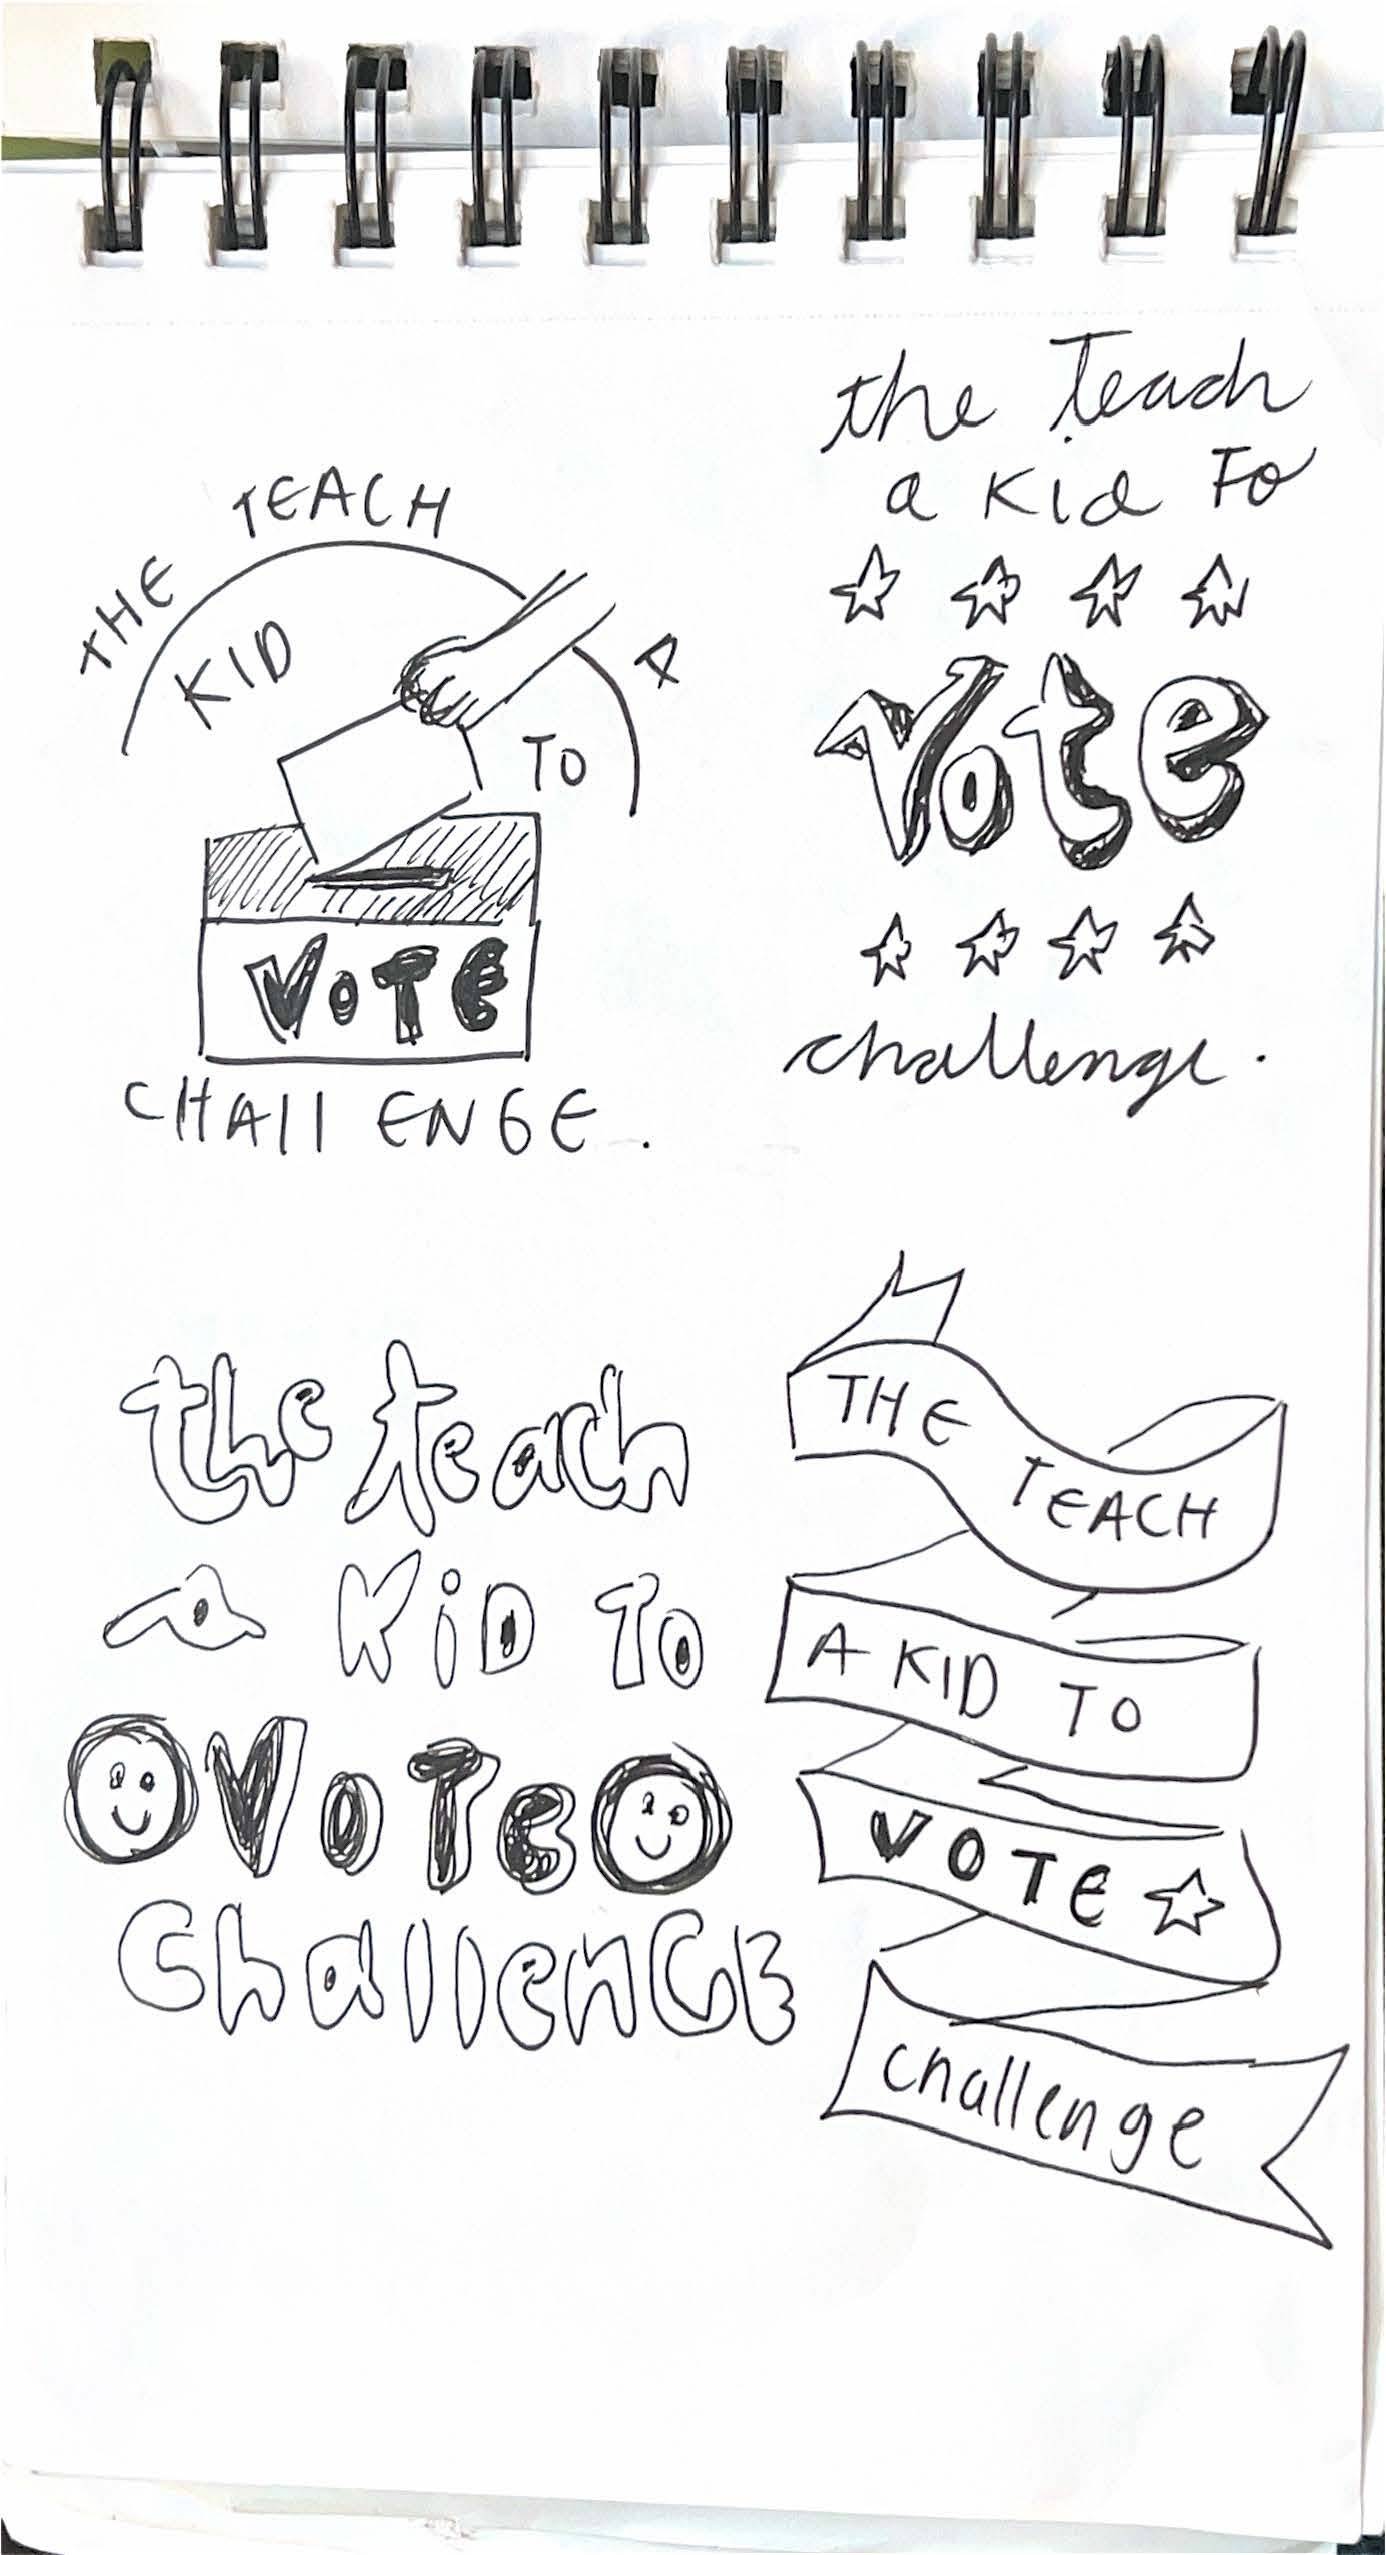 THE TEACH A
KID TO
VOTE
CHALLENGE.
the Teach
a Kid To
Vote
challenge.
the teach
a KiD To
VoTe
ChallenGE
THE TEACH
A KID TO
VOTE
challenge